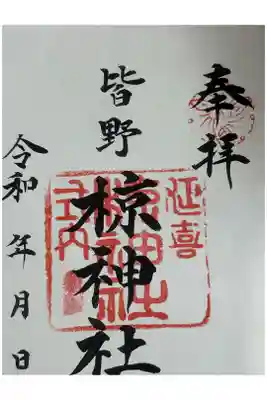 奉拝
皆野
椋神社
延喜
式内
椋神社
令和 年 月 日